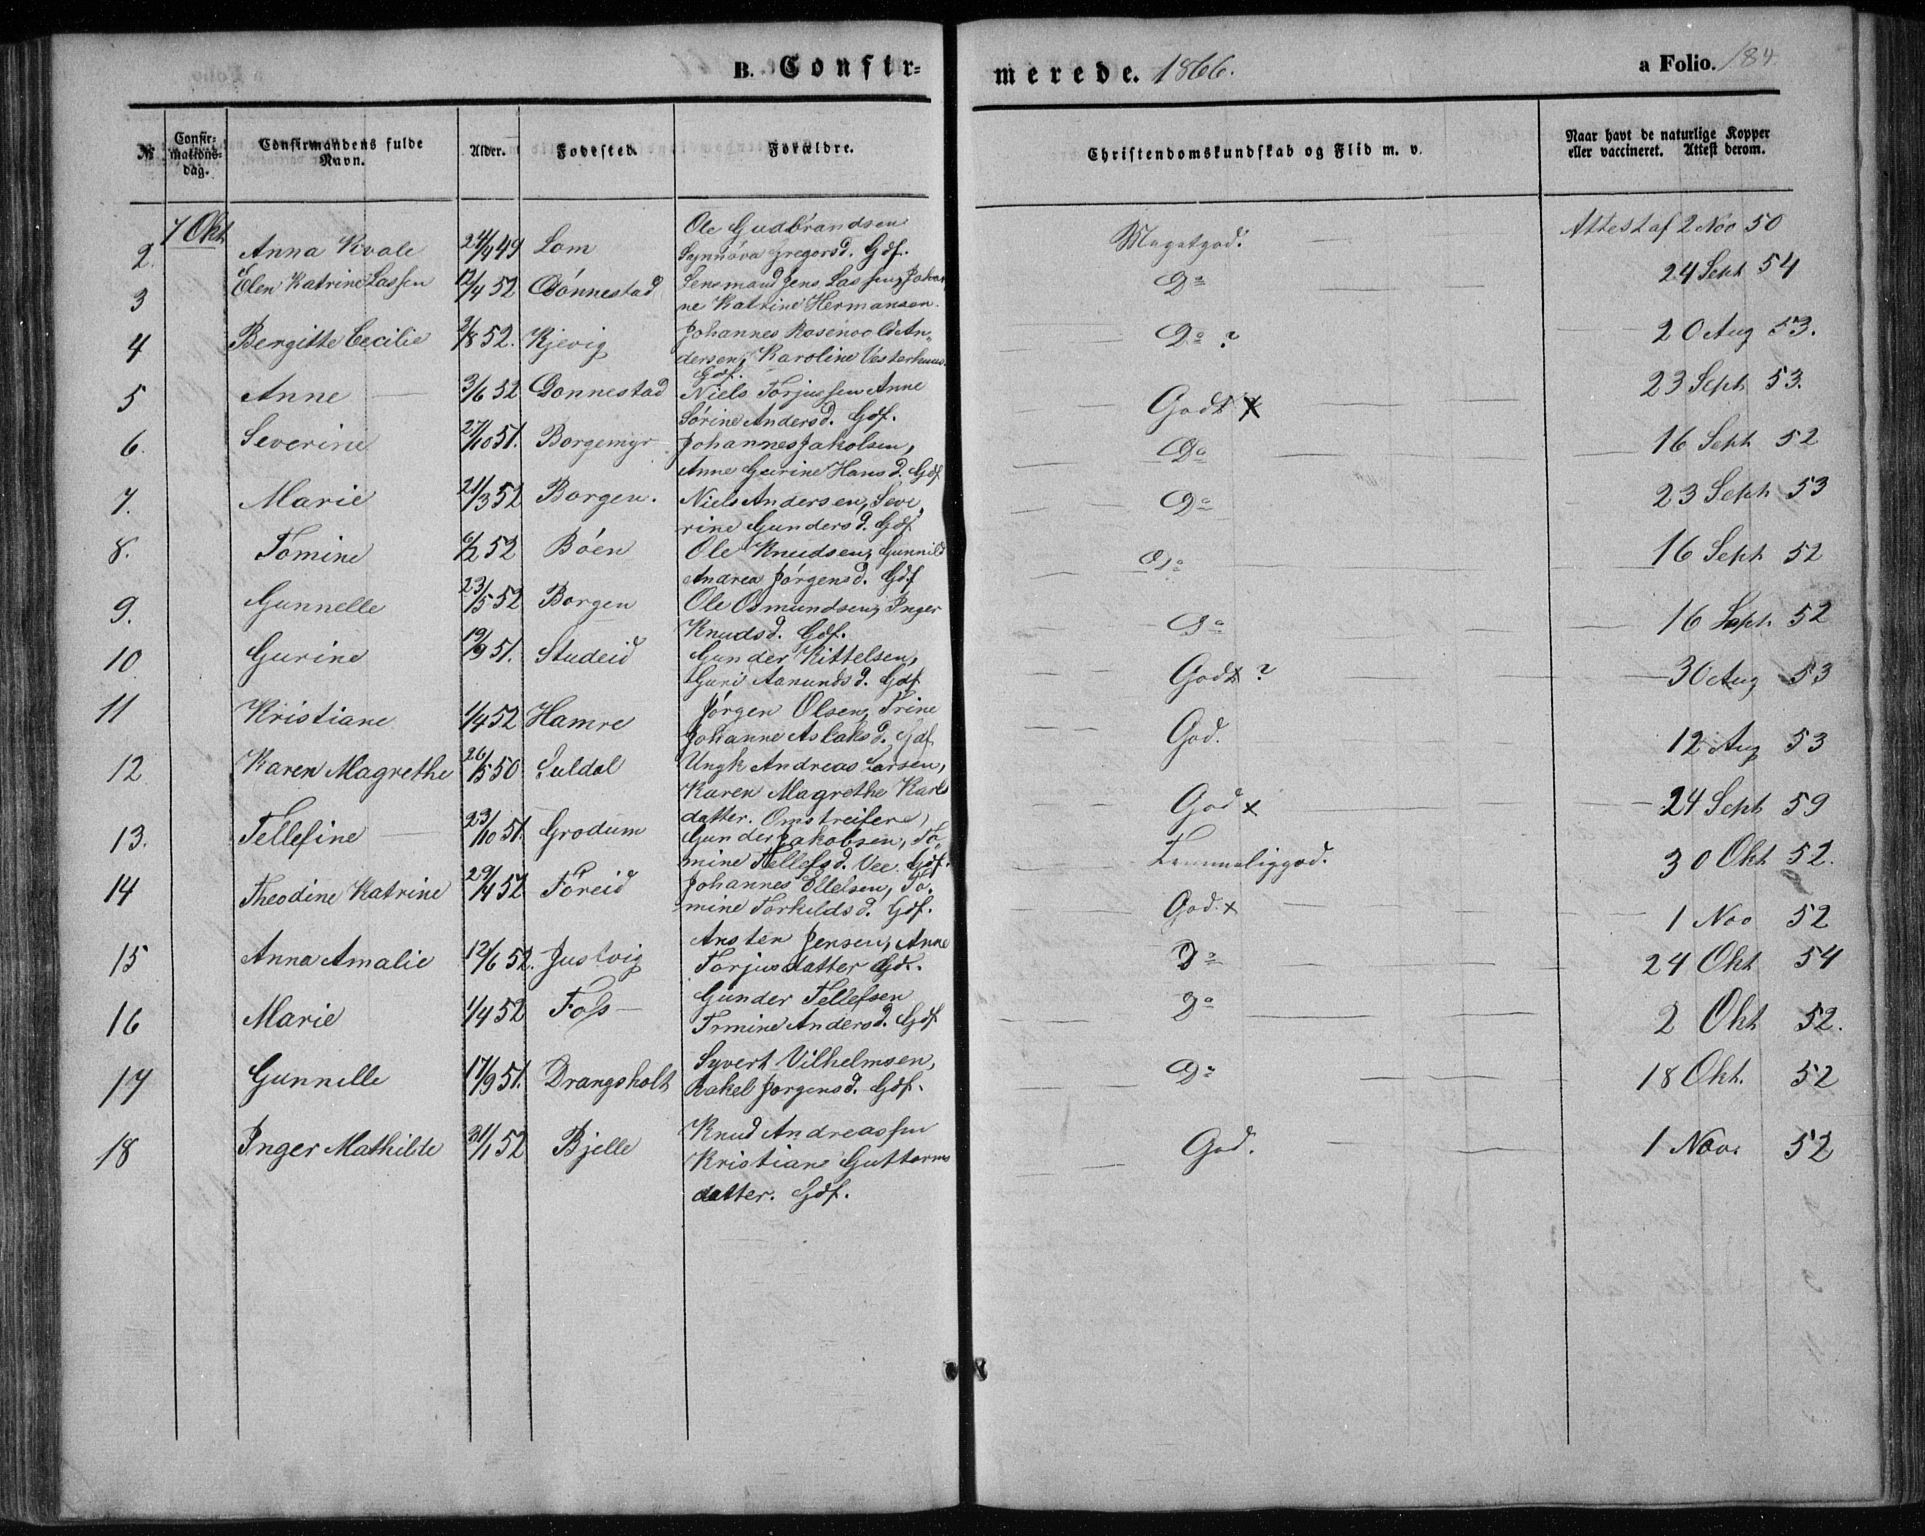 B. Confir=
merede. 1866.
a Folio. 184.
№
Confir-
mations-
dag.
Confirmandens fulde
Navn.
Alder.
Fodested.
Forældre.
Christendomskundskab og Flid m. v.
Naar havt de naturlige Kopper
eller vaccineret. Attest derom.
7 Okt
Ole Gudbrandsen
2. Anna Kvale 49 Lom Synnóva Gregorsd. Gdf. Megetgod. Attest af 2 Nov 50
3 Elen Katrine Lassen 12/4 52 Dónnestad Lensmand Jens Lassen, Johan
ne Katrine Hermansen. Do 24 Sept 54
4 Bergitte Cecilie /8 52. Kjevig Johannes Rosenvold An-
dersen, Karoline Vesterhuus
Gdf. Do ? 20 Aug 53.
5 Anne 3/6 52 Donnestad Niels Torjussen Anne
Sórine Andersd. Gdf. Godt x 23 Sept 53.
6. Severine 27/10 51. Borgemyr Johannes Jakobsen,
Anne Gurine Hansd. Gdf Do 16 Sept 52
7. Marie 21/3 52 Borgen. Niels Andersen, Seve
rine Gundersd. Gdf Do 23 Sept 53
8. Tomine 6/2 52 Bóen Ole Knudsen, Gunnild
Andrea Jórgensd. Gdf Do 16 Sept 52
9. Gunnelle 23/5 52 Borgen Ole Osmundsen, Inger
Knudsd. Gdf. Do 16 Sept. 52
10. Gurine 19/9 51. Studeid Gunder Kittelsen,
Guri Aanundsd. Gdf Godt ? 30 Aug 53
11 Kristiane 1/4 52 Hamre Jórgen Olsen, Trine
Johanne Aslaksd. Gdf God. 12 Aug 53
12 Karen Magrethe 26/5 50. Suldal Ungk Andreas Larsen,
Karen Magrethe Karls
datter. Omstreifere, God x 24 Sept 59
13. Tellefine 23/10 51. Grodum Gunder Jakobsen, To
mine Tellefsd. Vee. Gdf. Temmeliggod. 30 Okt 52.
14 Theodine Katrine 29/4 52 Foreid Johannes Ellefsen, To
mine Torkildsd. Gdf. God. x 1 Nov 52
15 Anna Amalie 12/6 52. Justvig Ansten Jensen, Anne
Torjusdatter Gdf. Do 24 Okt 54
16 Marie 1/4 52 Foss Gunder Tellefsen
Tomine Andersd. Gdf Do 2 Okt 52.
17 Gunnille 17/9 51. Drangsholt Syvert Vilhelmsen,
Rakel Jorgensd. Gdf. Do 18 Okt. 52
18 Inger Mathilde 31/1 52 Bjelle Knud Andreassen
Kristiane Guttorms
datter. Gdf. God. 1 Nov. 52